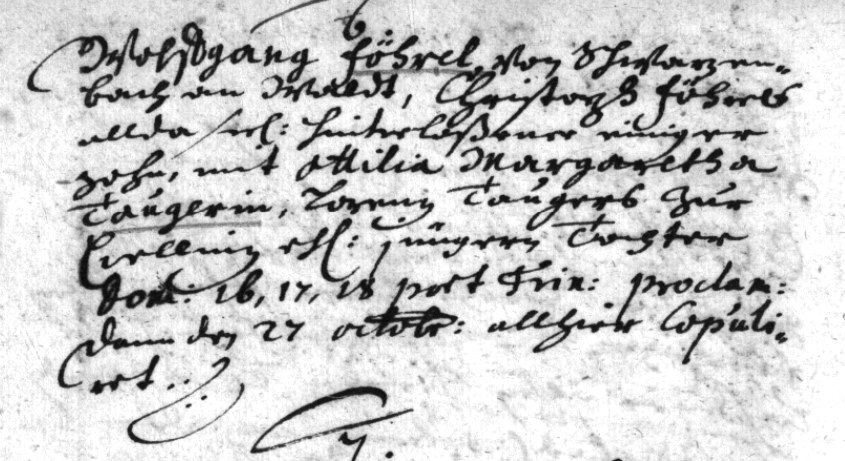 6.
Wolfgang Föhrel, von Schwarzen-
bach an Waldt, Christoph Föhrels
allda seel: hinterlaßener einiger
Sohn, mit Ottilia Margaretha
Taugerin, Lorenz Taugers zur
ehl: jüngern Tochter
Dom: 16, 17, 18 post Trin: proclam:
dann den 27 octobr: allhier Copuli-
ret.
7.